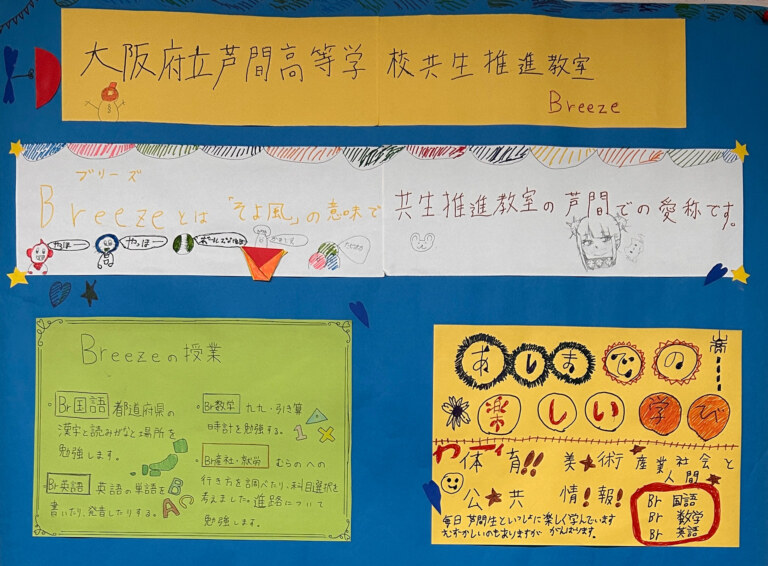 大阪府立芦間高等学校共生推進教室
Breeze
ブリーズ
Breezeとは「そよ風」の意味で 共生推進教室の芦間での愛称です。
やほー
やっほー
Breezeの授業
・Br国語 都道府県の
漢字と読みがなと場所を
勉強します。
Br英語 英語の単語を
書いたり、発音したりする。
ABC
・Br数学 九九・引き算
時計を勉強する。
1 ×
・Br産社・就労 むらのへの
行き方を調べたり、科目選択を
考えました。進路について
勉強します。
あしまでの
楽しい学び
体育!! 美術 産業社会と
人間
公共 情報!
毎日芦間生といっしょに楽しく学んでいます
むずかしいのもありますが がんばります。
Br 国語
Br 数学
Br 英語